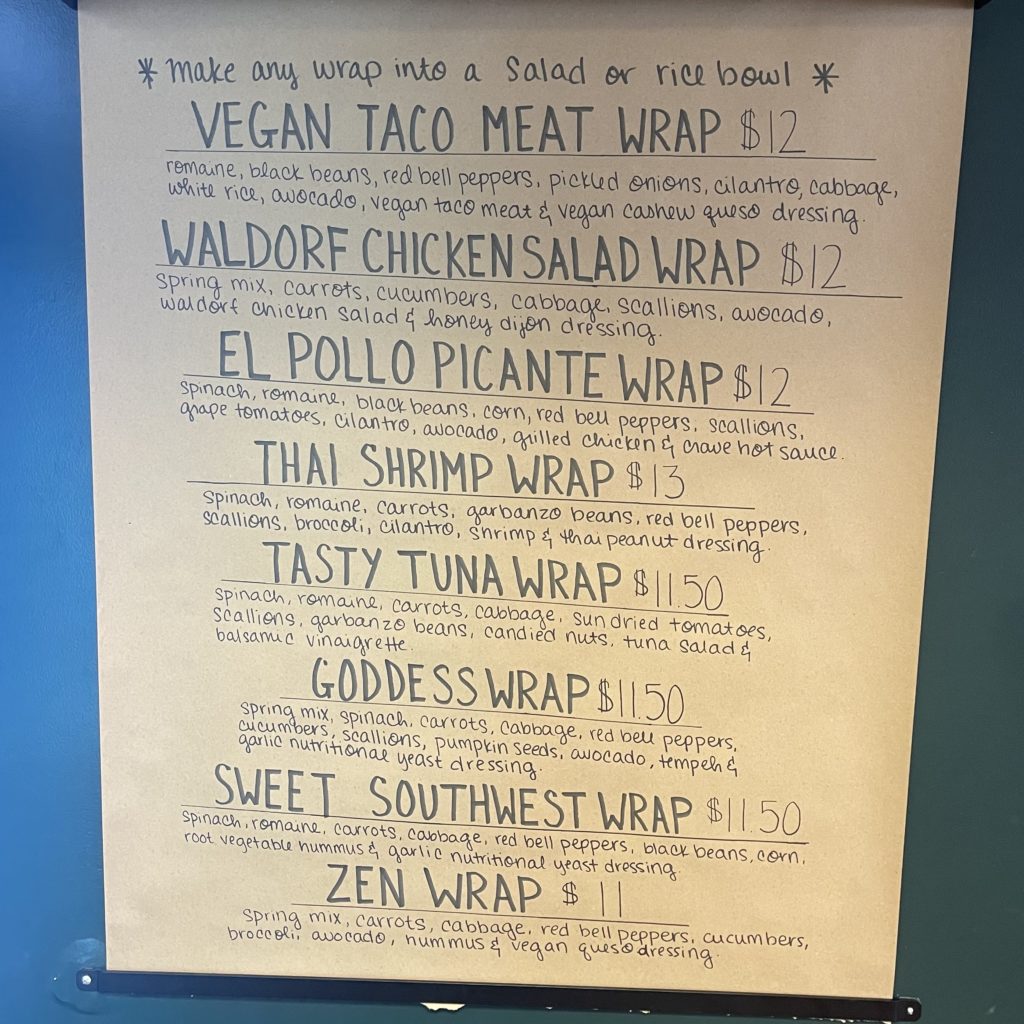 * make any wrap into a salad or rice bowl *
VEGAN TACO MEAT WRAP $12
romaine, black beans, red bell peppers, pickled onions, cilantro, cabbage,
white rice, avocado, vegan taco meat & vegan cashew queso dressing.
WALDORF CHICKEN SALAD WRAP $12
spring mix, carrots, cucumbers, cabbage, scallions, avocado,
waldorf chicken salad & honey dijon dressing.
EL POLLO PICANTE WRAP $12
spinach, romaine, black beans, corn, red bell peppers, scallions,
grape tomatoes, cilantro, avocado, grilled chicken & crave hot sauce.
THAI SHRIMP WRAP $13
spinach, romaine, carrots, garbanzo beans, red bell peppers,
scallions, broccoli, cilantro, shrimp & thai peanut dressing.
TASTY TUNA WRAP $11.50
spinach, romaine, carrots, cabbage, sun dried tomatoes,
scallions, garbanzo beans, candied nuts, tuna salad &
balsamic vinaigrette.
GODDESS WRAP $11.50
spring mix, spinach, carrots, cabbage, red bell peppers,
cucumbers, scallions, pumpkin seeds, avocado, tempeh &
garlic nutritional yeast dressing.
SWEET SOUTHWEST WRAP $11.50
spinach, romaine, carrots, cabbage, red bell peppers, black beans, corn,
root vegetable hummus & garlic nutritional yeast dressing.
ZEN WRAP $11
spring mix, carrots, cabbage, red bell peppers, cucumbers,
broccoli, avocado, hummus & vegan queso dressing.